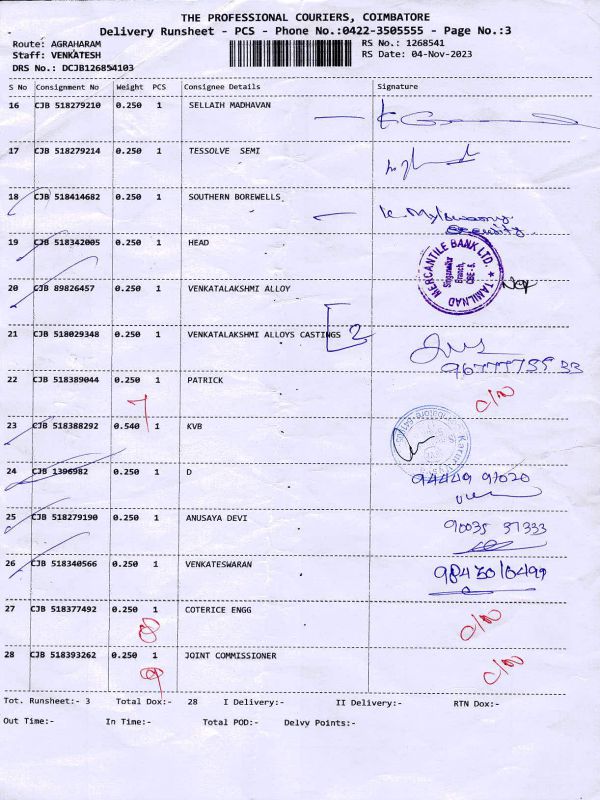 THE PROFESSIONAL COURIERS, COIMBATORE
Delivery Runsheet - PCS - Phone No.:0422-3505555 - Page No.:3
Route: AGRAHARAM RS No.: 1268541
Staff: VENKATESH RS Date: 04-Nov-2023
DRS No.: DCJB126854103
S No Consignment No Weight PCS Consignee Details Signature
16 CJB 518279210 0.250 1 SELLAIH MADHAVAN
17 CJB 518279214 0.250 1 TESSOLVE SEMI
18 CJB 518414682 0.250 1 SOUTHERN BOREWELLS
Security
19 CJB 518342005 0.250 1 HEAD
TAMILNAD MERCANTILE BANK LTD.
Singanallur
Branch,
CBE - 5.
20 CJB 89826457 0.250 1 VENKATALAKSHMI ALLOY
21 CJB 518029348 0.250 1 VENKATALAKSHMI ALLOYS CASTINGS 2
22 CJB 518389044 0.250 1 PATRICK
7
23 CJB 518388292 0.540 1 KVB
24 CJB 1396982 0.250 1 D 94449 97020
25 CJB 518279190 0.250 1 ANUSAYA DEVI 90035 37333
26 CJB 518340566 0.250 1 VENKATESWARAN 9843010499
27 CJB 518377492 0.250 1 COTERICE ENGG
8
28 CJB 518393262 0.250 1 JOINT COMMISSIONER
9
Tot. Runsheet:- 3 Total Dox:- 28 I Delivery:- II Delivery:- RTN Dox:-
Out Time:- In Time:- Total POD:- Delvy Points:-